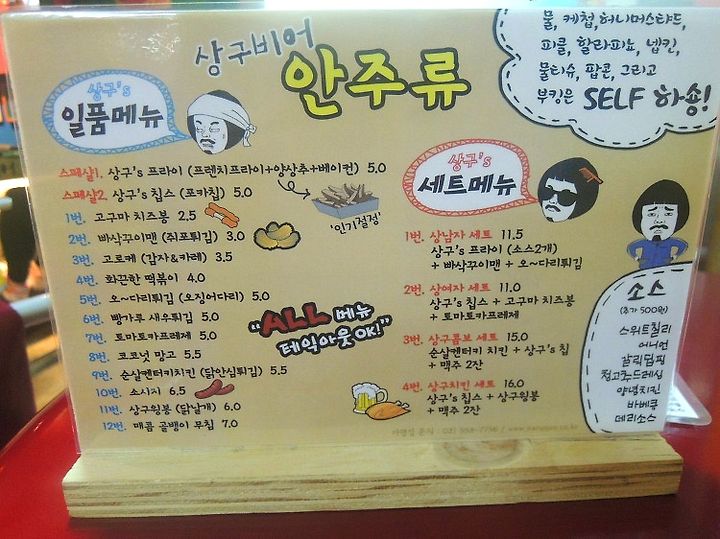 상구비어
안주류
물, 케첩, 허니머스타드,
피클, 할라피뇨, 냅킨,
물티슈, 팝콘, 그리고
부킹은 SELF 하숑!
상구's
일품메뉴
스페샬1. 상구's 프라이 (프렌치프라이+양상추+베이컨) 5.0
스페샬2. 상구's 칩스 (포카칩) 5.0
'인기절정'
1번. 고구마 치즈봉 2.5
2번. 빠삭꾸이맨 (쥐포튀김) 3.0
3번. 고로케 (감자&카레) 3.5
4번. 화끈한 떡볶이 4.0
5번. 오~다리튀김 (오징어다리) 5.0
6번. 빵가루 새우튀김 5.0
7번. 토마토카프레제 5.0
8번. 코코넛 망고 5.5
9번. 순살켄터키치킨 (닭안심튀김) 5.5
10번. 소시지 6.5
11번. 상구윙봉 (닭날개) 6.0
12번. 매콤 골뱅이 무침 7.0
"ALL 메뉴
테익아웃 OK!"
상구's
세트메뉴
1번. 상남자 세트 11.5
상구's 프라이 (소스2개)
+ 빠삭꾸이맨 + 오~다리튀김
2번. 상여자 세트 11.0
상구's 칩스 + 고구마 치즈봉
+ 토마토카프레제
3번. 상구콤보 세트 15.0
순살켄터키 치킨 + 상구's 칩
+ 맥주 2잔
4번. 상구치킨 세트 16.0
상구's 칩스 + 상구윙봉
+ 맥주 2잔
소스
(추가 500원)
스위트칠리
어니언
갈릭딥핑
청고추드레싱
양념치킨
바베큐
데리소스